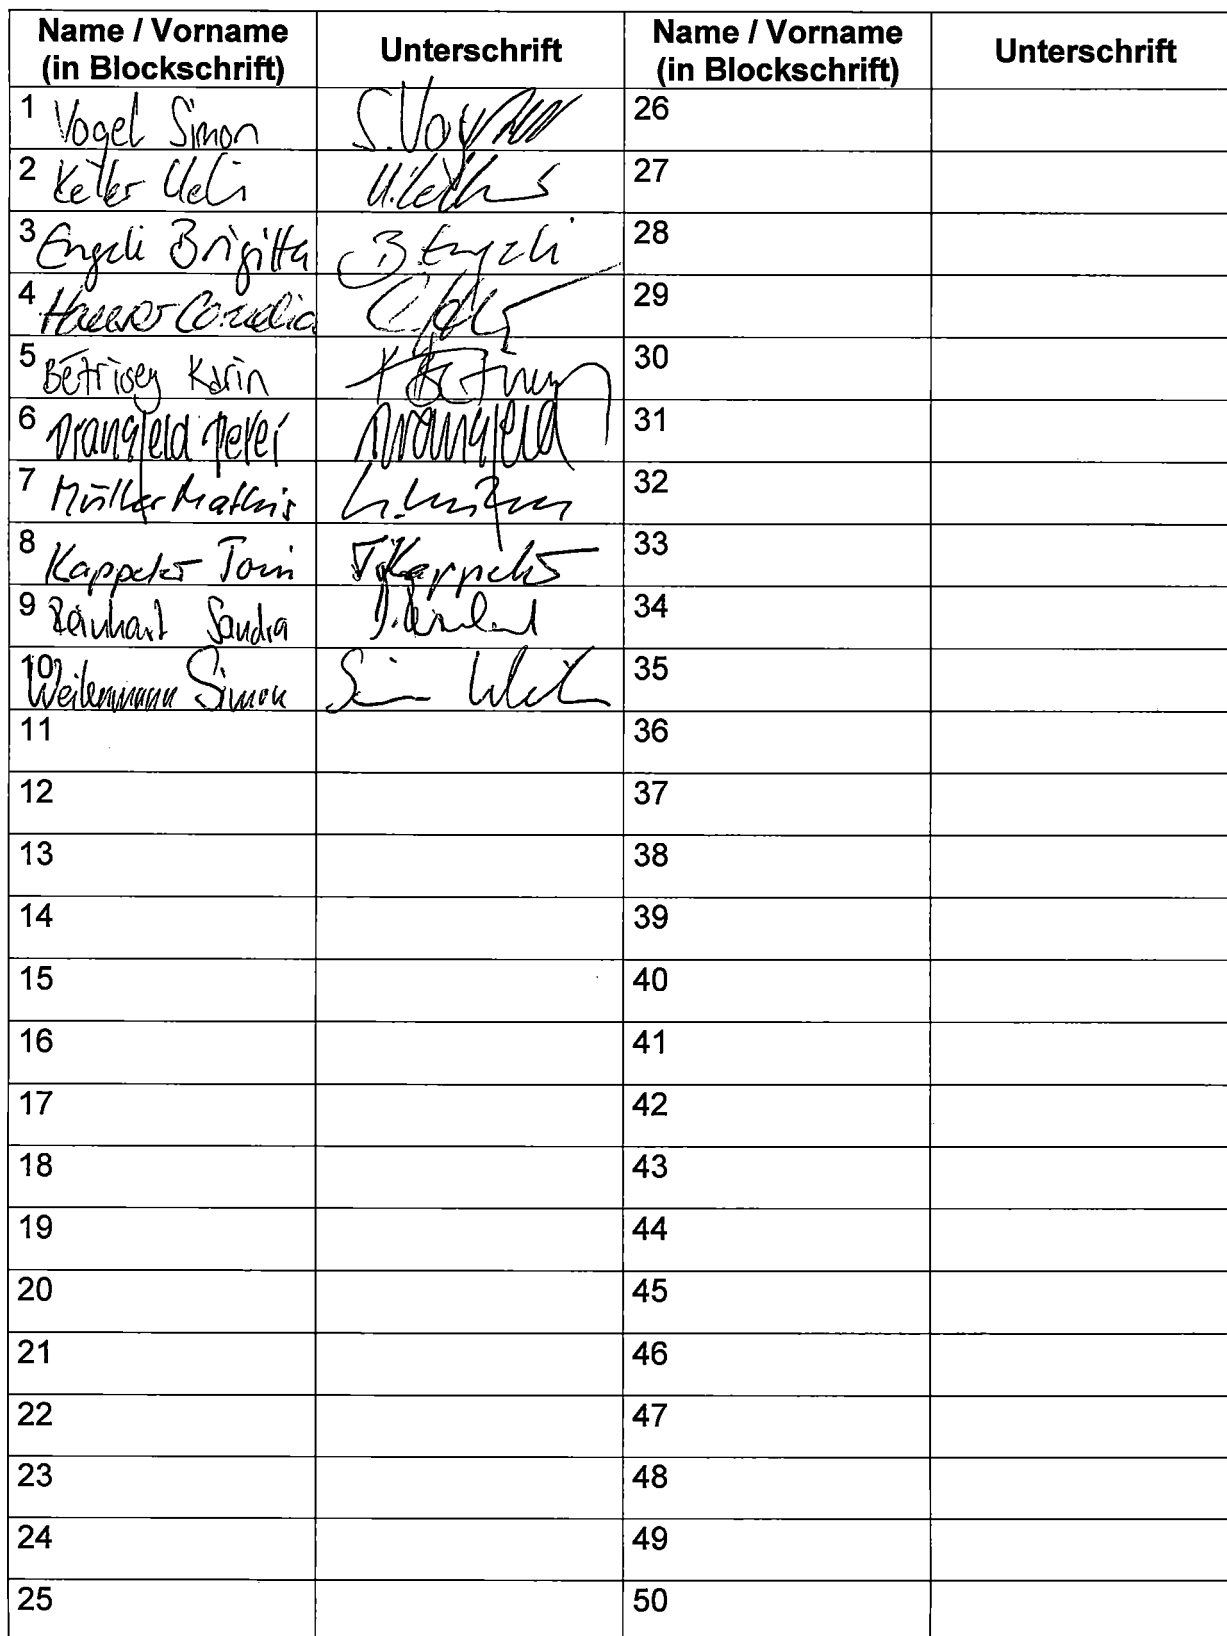 Name / Vorname
(in Blockschrift)
Unterschrift
Name / Vorname
(in Blockschrift)
Unterschrift
1 Vogel Simon
26
2 Keller Ueli
27
3 Engeli Brigitta B. Engeli
28
4 Cornelia
29
5 Bétrisey Karin
30
6
31
7 Müller Mathis
32
8 Kappeler Toni T. Kappeler
33
9 Reinhart Sandra
34
10 Weilenmann Simon
35
11
36
12
37
13
38
14
39
15
40
16
41
17
42
18
43
19
44
20
45
21
46
22
47
23
48
24
49
25
50